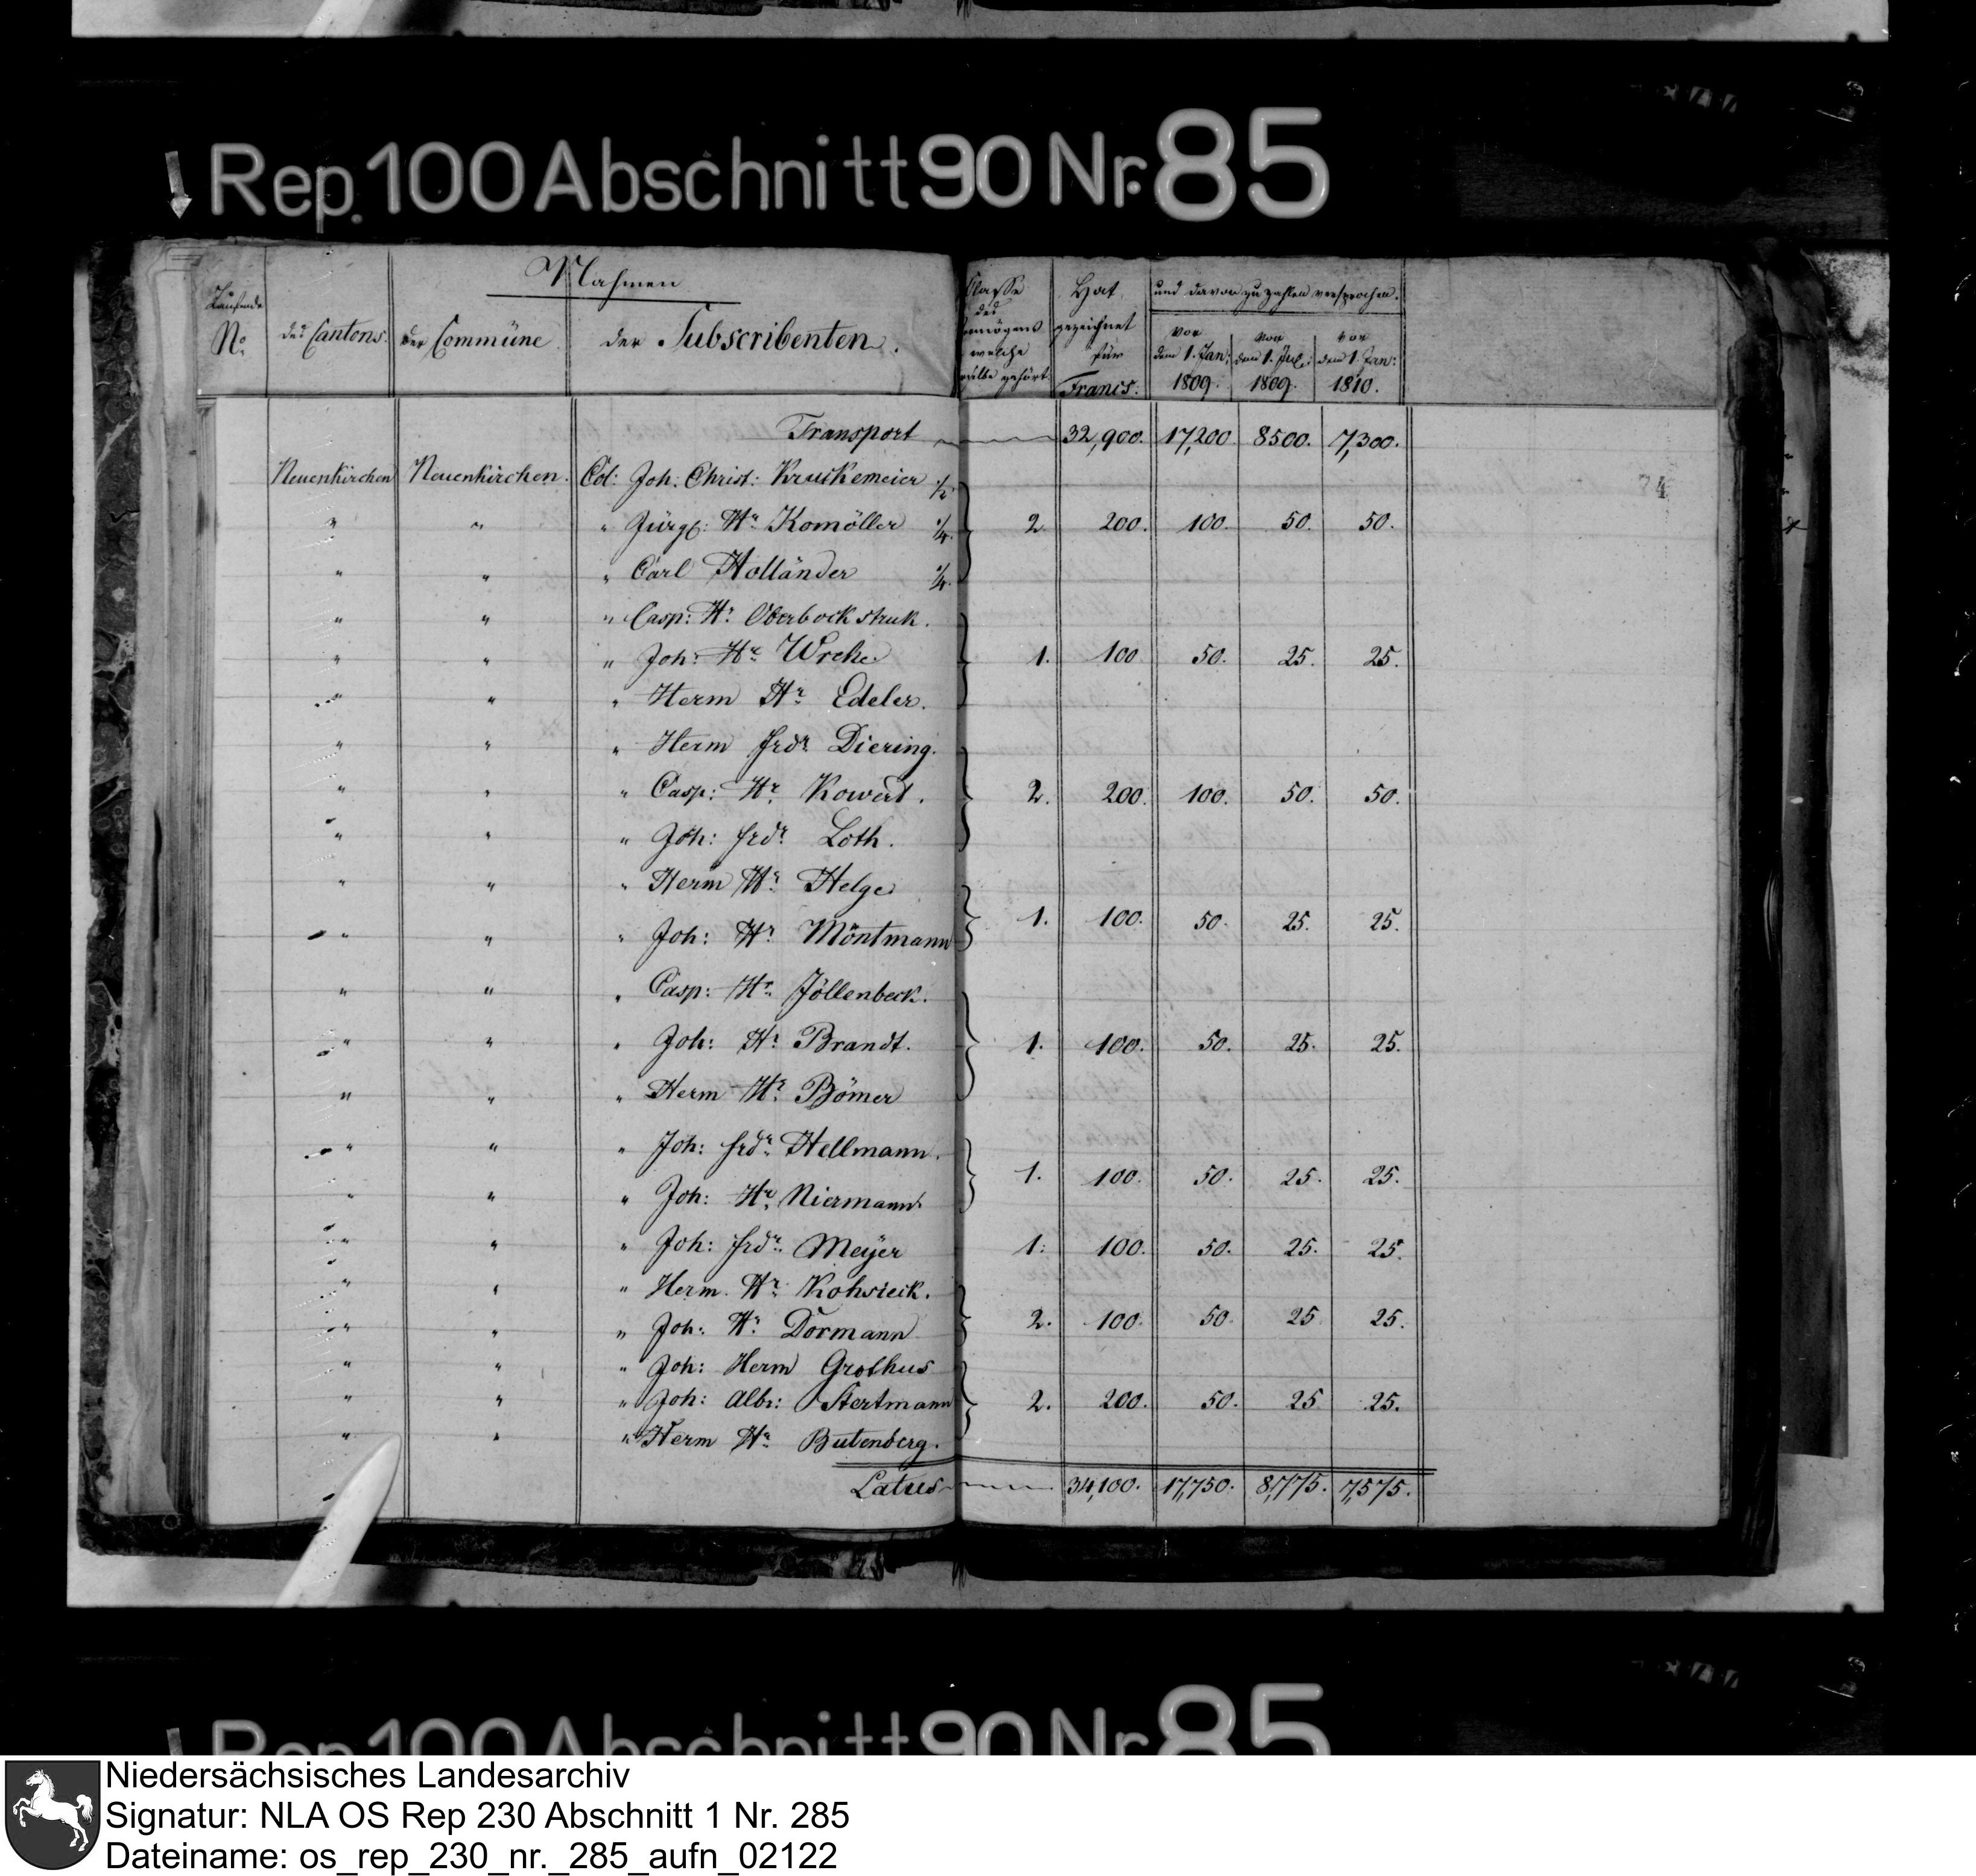 Rep. 100 Abschnitt 90 Nr. 85
Nahmen
Laufende No. des Cantons. der Commüne der Subscribenten. Classe des Vermögens welche selbe gehört. Hat gezeichnet für Francs. und davon zu zahlen versprochen. vor dem 1. Jan: 1809. vor dem 1. Jul: 1809. vor dem 1. Jan: 1810.
Transport 32,900. 17,200 8500. 7,300.
74
Neuenkirchen Neuenkirchen. Col: Joh: Christ: Kruckemeier
" " " Jürg: Hr. Komöller 2 200. 100. 50. 50.
" " " Carl Holländer
" " " Casp: Hr. Oberbockstruk.
" " " Joh: Hr. Wrehe 1. 100 50. 25. 25.
" " " Herm Hr. Edeler.
" " " Herm Frdr. Diering.
" " " Casp: Hr. Kowert. 2. 200. 100. 50. 50.
" " " Joh: Frdr. Loth.
" " " Herm Hr. Helge
" " " Joh: Hr. Möntmann 1. 100. 50. 25. 25.
" " " Casp: Hr. Jöllenbeck.
" " " Joh: Hr. Brandt. 1. 100. 50. 25. 25.
" " " Herm Hr. Bömer
" " " Joh: Frdr. Hellmann.
" " " Joh: Hr. Niermann. 1. 100. 50. 25. 25.
" " " Joh: Frdr. Meÿer 1. 100. 50. 25. 25.
" " " Herm. Hr. Kohsieck.
" " " Joh: Hr. Dormann 2. 100. 50. 25 25.
" " " Joh: Herm Grothus
" " " Joh: Albr: Stertmann 2. 200. 50. 25 25.
" " " Herm Hr. Butenberg.
Latus 34,100. 17,750. 8,775. 7,575.
Rep. 100 Abschnitt 90 Nr. 85
Niedersächsisches Landesarchiv
Signatur: NLA OS Rep 230 Abschnitt 1 Nr. 285
Dateiname: os_rep_230_nr._285_aufn_02122